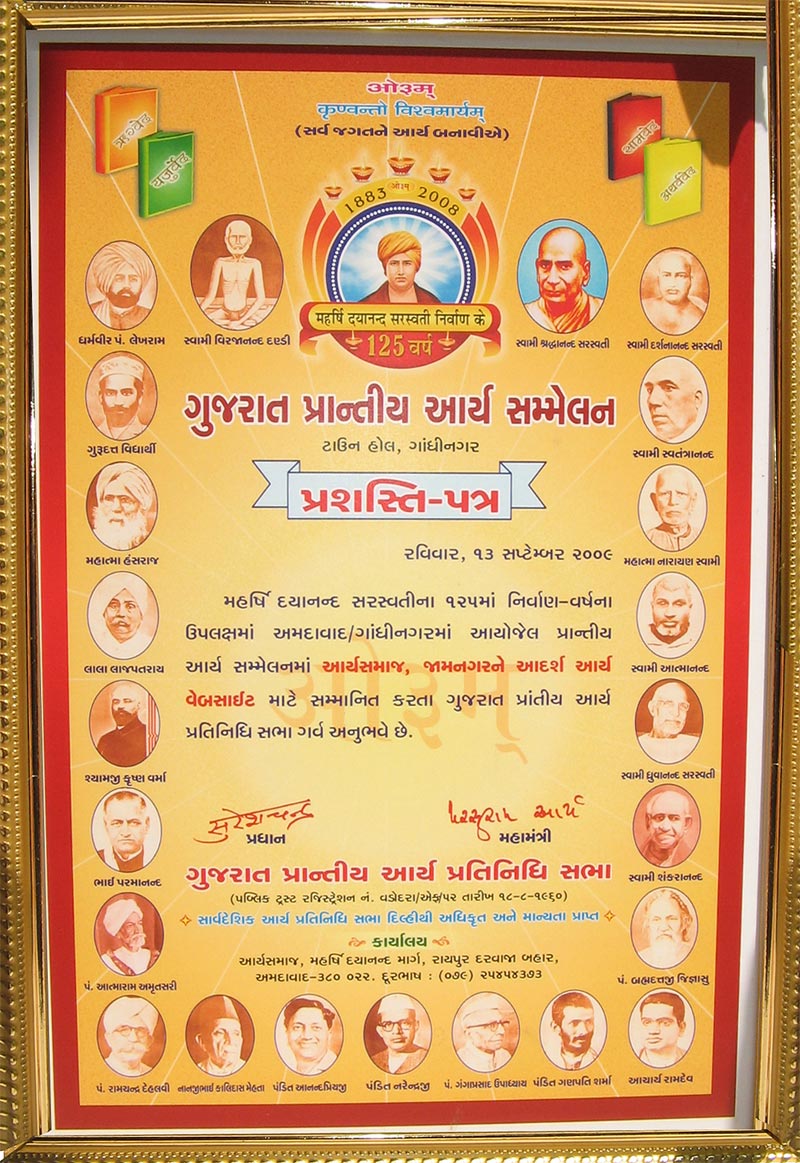 ઓ૩મ્
કૃણ્વન્તો વિશ્વમાર્યમ્
(સર્વ જગતને આર્ય બનાવીએ)
ઋગ્વેદ
યજુર્વેદ
સામવેદ
અથર્વવેદ
ઓ૩મ્
1883 2008
મહર્ષિ દયાનન્દ સરસ્વતી નિર્વાણ કે
125 વર્ષ
ધર્મવીર પં. લેખરામ
સ્વામી વિરજાનન્દ દણ્ડી
સ્વામી શ્રદ્ધાનન્દ સરસ્વતી
સ્વામી દર્શનાનન્દ સરસ્વતી
ગુજરાત પ્રાન્તીય આર્ય સમ્મેલન
ટાઉન હોલ, ગાંધીનગર
ગુરૂદત્ત વિદ્યાર્થી
સ્વામી સ્વતંત્રાનન્દ
પ્રશસ્તિ-પત્ર
રવિવાર, ૧૩ સપ્ટેમ્બર ૨૦૦૯
મહાત્મા હંસરાજ
મહાત્મા નારાયણ સ્વામી
મહર્ષિ દયાનન્દ સરસ્વતીના ૧૨૫માં નિર્વાણ-વર્ષના
ઉપલક્ષમાં અમદાવાદ/ગાંધીનગરમાં આયોજેલ પ્રાન્તીય
આર્ય સમ્મેલનમાં આર્યસમાજ, જામનગરને આદર્શ આર્ય
વેબસાઈટ માટે સમ્માનિત કરતા ગુજરાત પ્રાંતીય આર્ય
પ્રતિનિધિ સભા ગર્વ અનુભવે છે.
ઓ૩મ્
લાલા લાજપતરાય
સ્વામી આત્માનન્દ
શ્યામજી કૃષ્ણ વર્મા
સ્વામી ધ્રુવાનન્દ સરસ્વતી
સુરેશચન્દ્ર
પરસુરામ આર્ય
પ્રધાન
મહામંત્રી
ભાઈ પરમાનન્દ
સ્વામી શંકરાનન્દ
ગુજરાત પ્રાન્તીય આર્ય પ્રતિનિધિ સભા
(પબ્લિક ટ્રસ્ટ રજિસ્ટ્રેશન નં. વડોદરા/એફ/૫૨ તારીખ ૧૮-૮-૧૯૬૦)
સાર્વદેશિક આર્ય પ્રતિનિધિ સભા દિલ્હીથી અધિકૃત અને માન્યતા પ્રાપ્ત
કાર્યાલય
આર્યસમાજ, મહર્ષિ દયાનન્દ માર્ગ, રાયપુર દરવાજા બહાર,
અમદાવાદ-૩૮૦ ૦૨૨. દૂરભાષ : (૦૭૯) ૨૫૪૫૪૩૭૩
પં. આત્મારામ અમૃતસરી
પં. બ્રહ્મદત્તજી જિજ્ઞાસુ
પં. રામચન્દ્ર દેહલવી
નાનજીભાઈ કાલિદાસ મેહતા
પંડિત આનન્દપ્રિયજી
પંડિત નરેન્દ્રજી
પં. ગંગાપ્રસાદ ઉપાધ્યાય
પંડિત ગણપતિ શર્મા
આચાર્ય રામદેવ